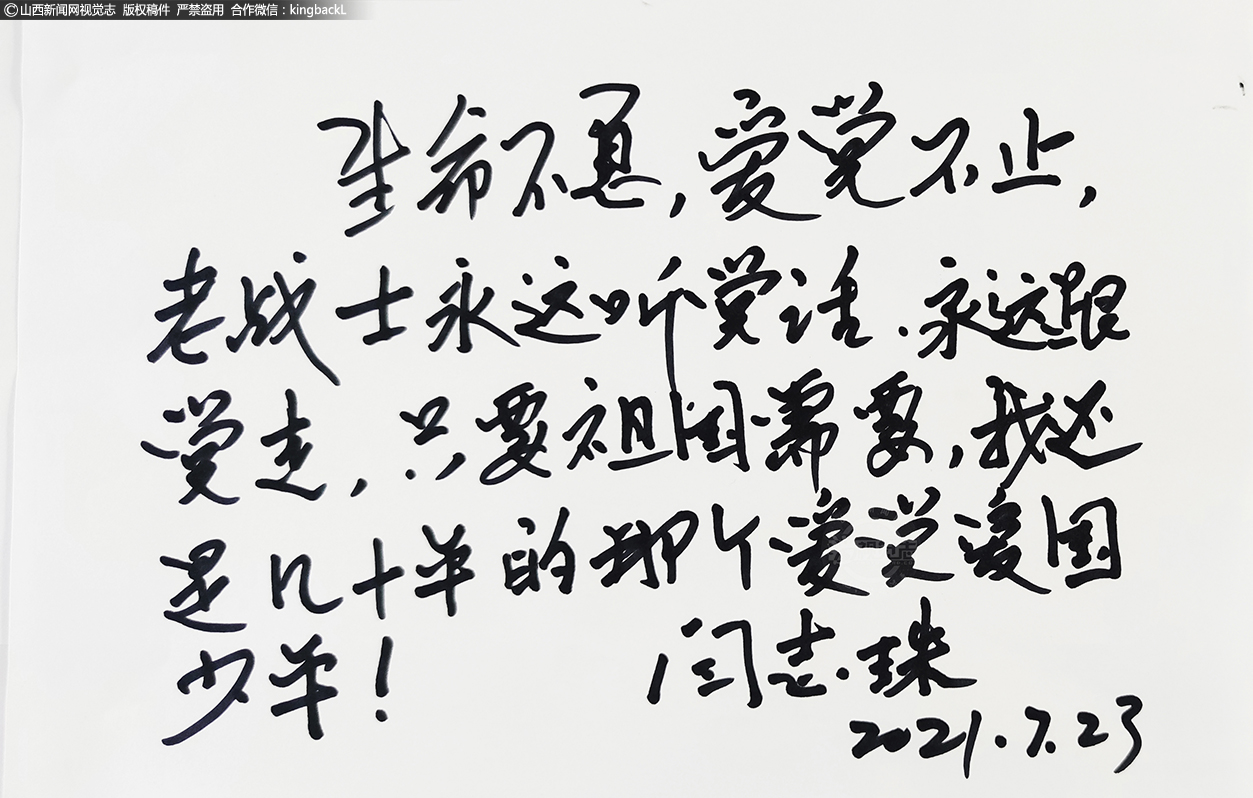 ©山西新闻网视觉志 版权稿件 严禁盗用 合作微信：kingbackL
生命不息，爱党不止，
老战士永远听党话．永远跟
党走，只要祖国需要，我还
是几十年的那个爱党爱国
少年！ 闫志珠
2021.7.23